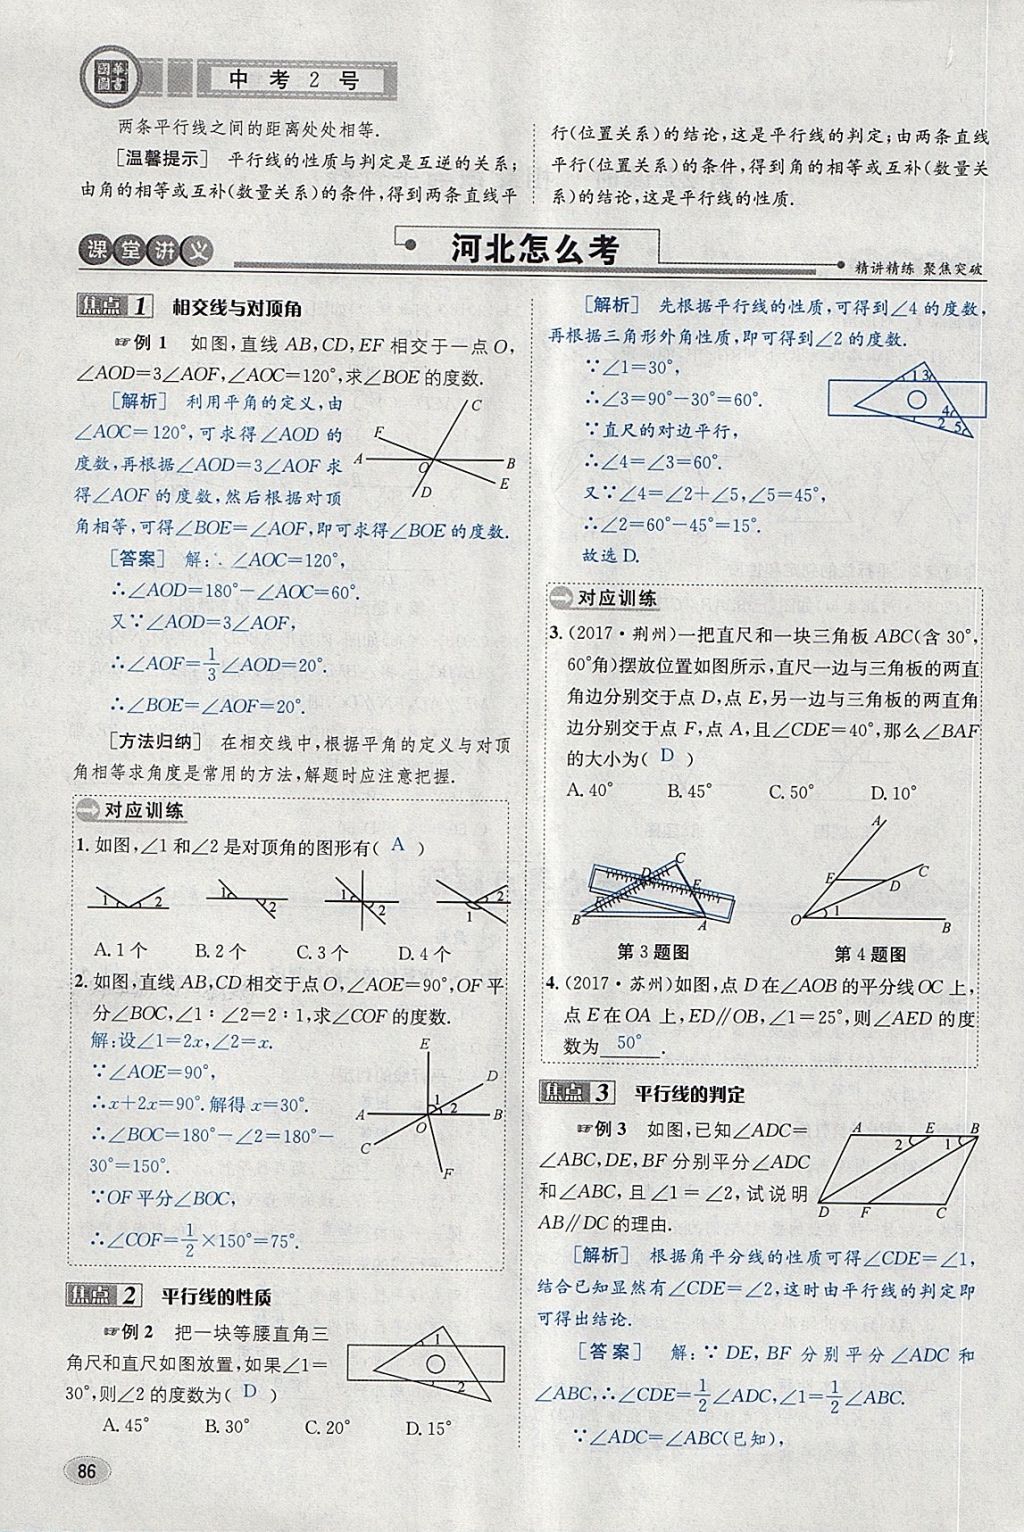 中考2号
两条平行线之间的距离处处相等.
[温馨提示] 平行线的性质与判定是互逆的关系;
由角的相等或互补(数量关系)的条件,得到两条直线平
行(位置关系)的结论,这是平行线的判定;由两条直线
平行(位置关系)的条件,得到角的相等或互补(数量关
系)的结论,这是平行线的性质.
课堂讲义
河北怎么考
精讲精练 聚焦突破
焦点1 相交线与对顶角
☞例1 如图,直线AB,CD,EF相交于一点O,
∠AOD=3∠AOF,∠AOC=120°,求∠BOE的度数.
[解析] 利用平角的定义,由
∠AOC=120°,可求得∠AOD的
度数,再根据∠AOD=3∠AOF求
得∠AOF的度数,然后根据对顶
角相等,可得∠BOE=∠AOF,即可求得∠BOE的度数.
C
F
A
O
B
E
D
[答案] 解:∵∠AOC=120°,
∴∠AOD=180°-∠AOC=60°.
又∵∠AOD=3∠AOF,
∴∠AOF=1/3∠AOD=20°.
∴∠BOE=∠AOF=20°.
[方法归纳] 在相交线中,根据平角的定义与对顶
角相等求角度是常用的方法,解题时应注意把握.
对应训练
1.如图,∠1和∠2是对顶角的图形有( A )
1 2 1 2 1 2 1 2
A.1个 B.2个 C.3个 D.4个
2.如图,直线AB,CD相交于点O,∠AOE=90°,OF平
分∠BOC,∠1∶∠2=2∶1,求∠COF的度数.
解:设∠1=2x,∠2=x.
∵∠AOE=90°,
∴x+2x=90°.解得x=30°.
∴∠BOC=180°-∠2=180°-
30°=150°.
∵OF平分∠BOC,
∴∠COF=1/2×150°=75°.
E
D
1
2
A
O
B
C
F
焦点2 平行线的性质
☞例2 把一块等腰直角三
角尺和直尺如图放置,如果∠1=
30°,则∠2的度数为( D )
A.45° B.30° C.20° D.15°
1
2
[解析] 先根据平行线的性质,可得到∠4的度数,
再根据三角形外角性质,即可得到∠2的度数.
∵∠1=30°,
∴∠3=90°-30°=60°.
∵直尺的对边平行,
∴∠4=∠3=60°.
又∵∠4=∠2+∠5,∠5=45°,
∴∠2=60°-45°=15°.
故选D.
1 3
4
2 5
对应训练
3.(2017·荆州)一把直尺和一块三角板ABC(含30°,
60°角)摆放位置如图所示,直尺一边与三角板的两直
角边分别交于点D,点E,另一边与三角板的两直角
边分别交于点F,点A,且∠CDE=40°,那么∠BAF
的大小为( D )
A.40° B.45° C.50° D.10°
C
D
E
F
B
A
A
C
E
D
1
O
B
第3题图 第4题图
4.(2017·苏州)如图,点D在∠AOB的平分线OC上,
点E在OA上,ED∥OB,∠1=25°,则∠AED的度
数为 50° .
焦点3 平行线的判定
☞例3 如图,已知∠ADC=
∠ABC,DE,BF分别平分∠ADC
和∠ABC,且∠1=∠2,试说明
AB∥DC的理由.
A E B
2 1
D F C
[解析] 根据角平分线的性质可得∠CDE=∠1,
结合已知显然有∠CDE=∠2,这时由平行线的判定即
可得出结论.
[答案] 解:∵DE,BF分别平分∠ADC和
∠ABC,∴∠CDE=1/2∠ADC,∠1=1/2∠ABC.
∵∠ADC=∠ABC(已知),
86